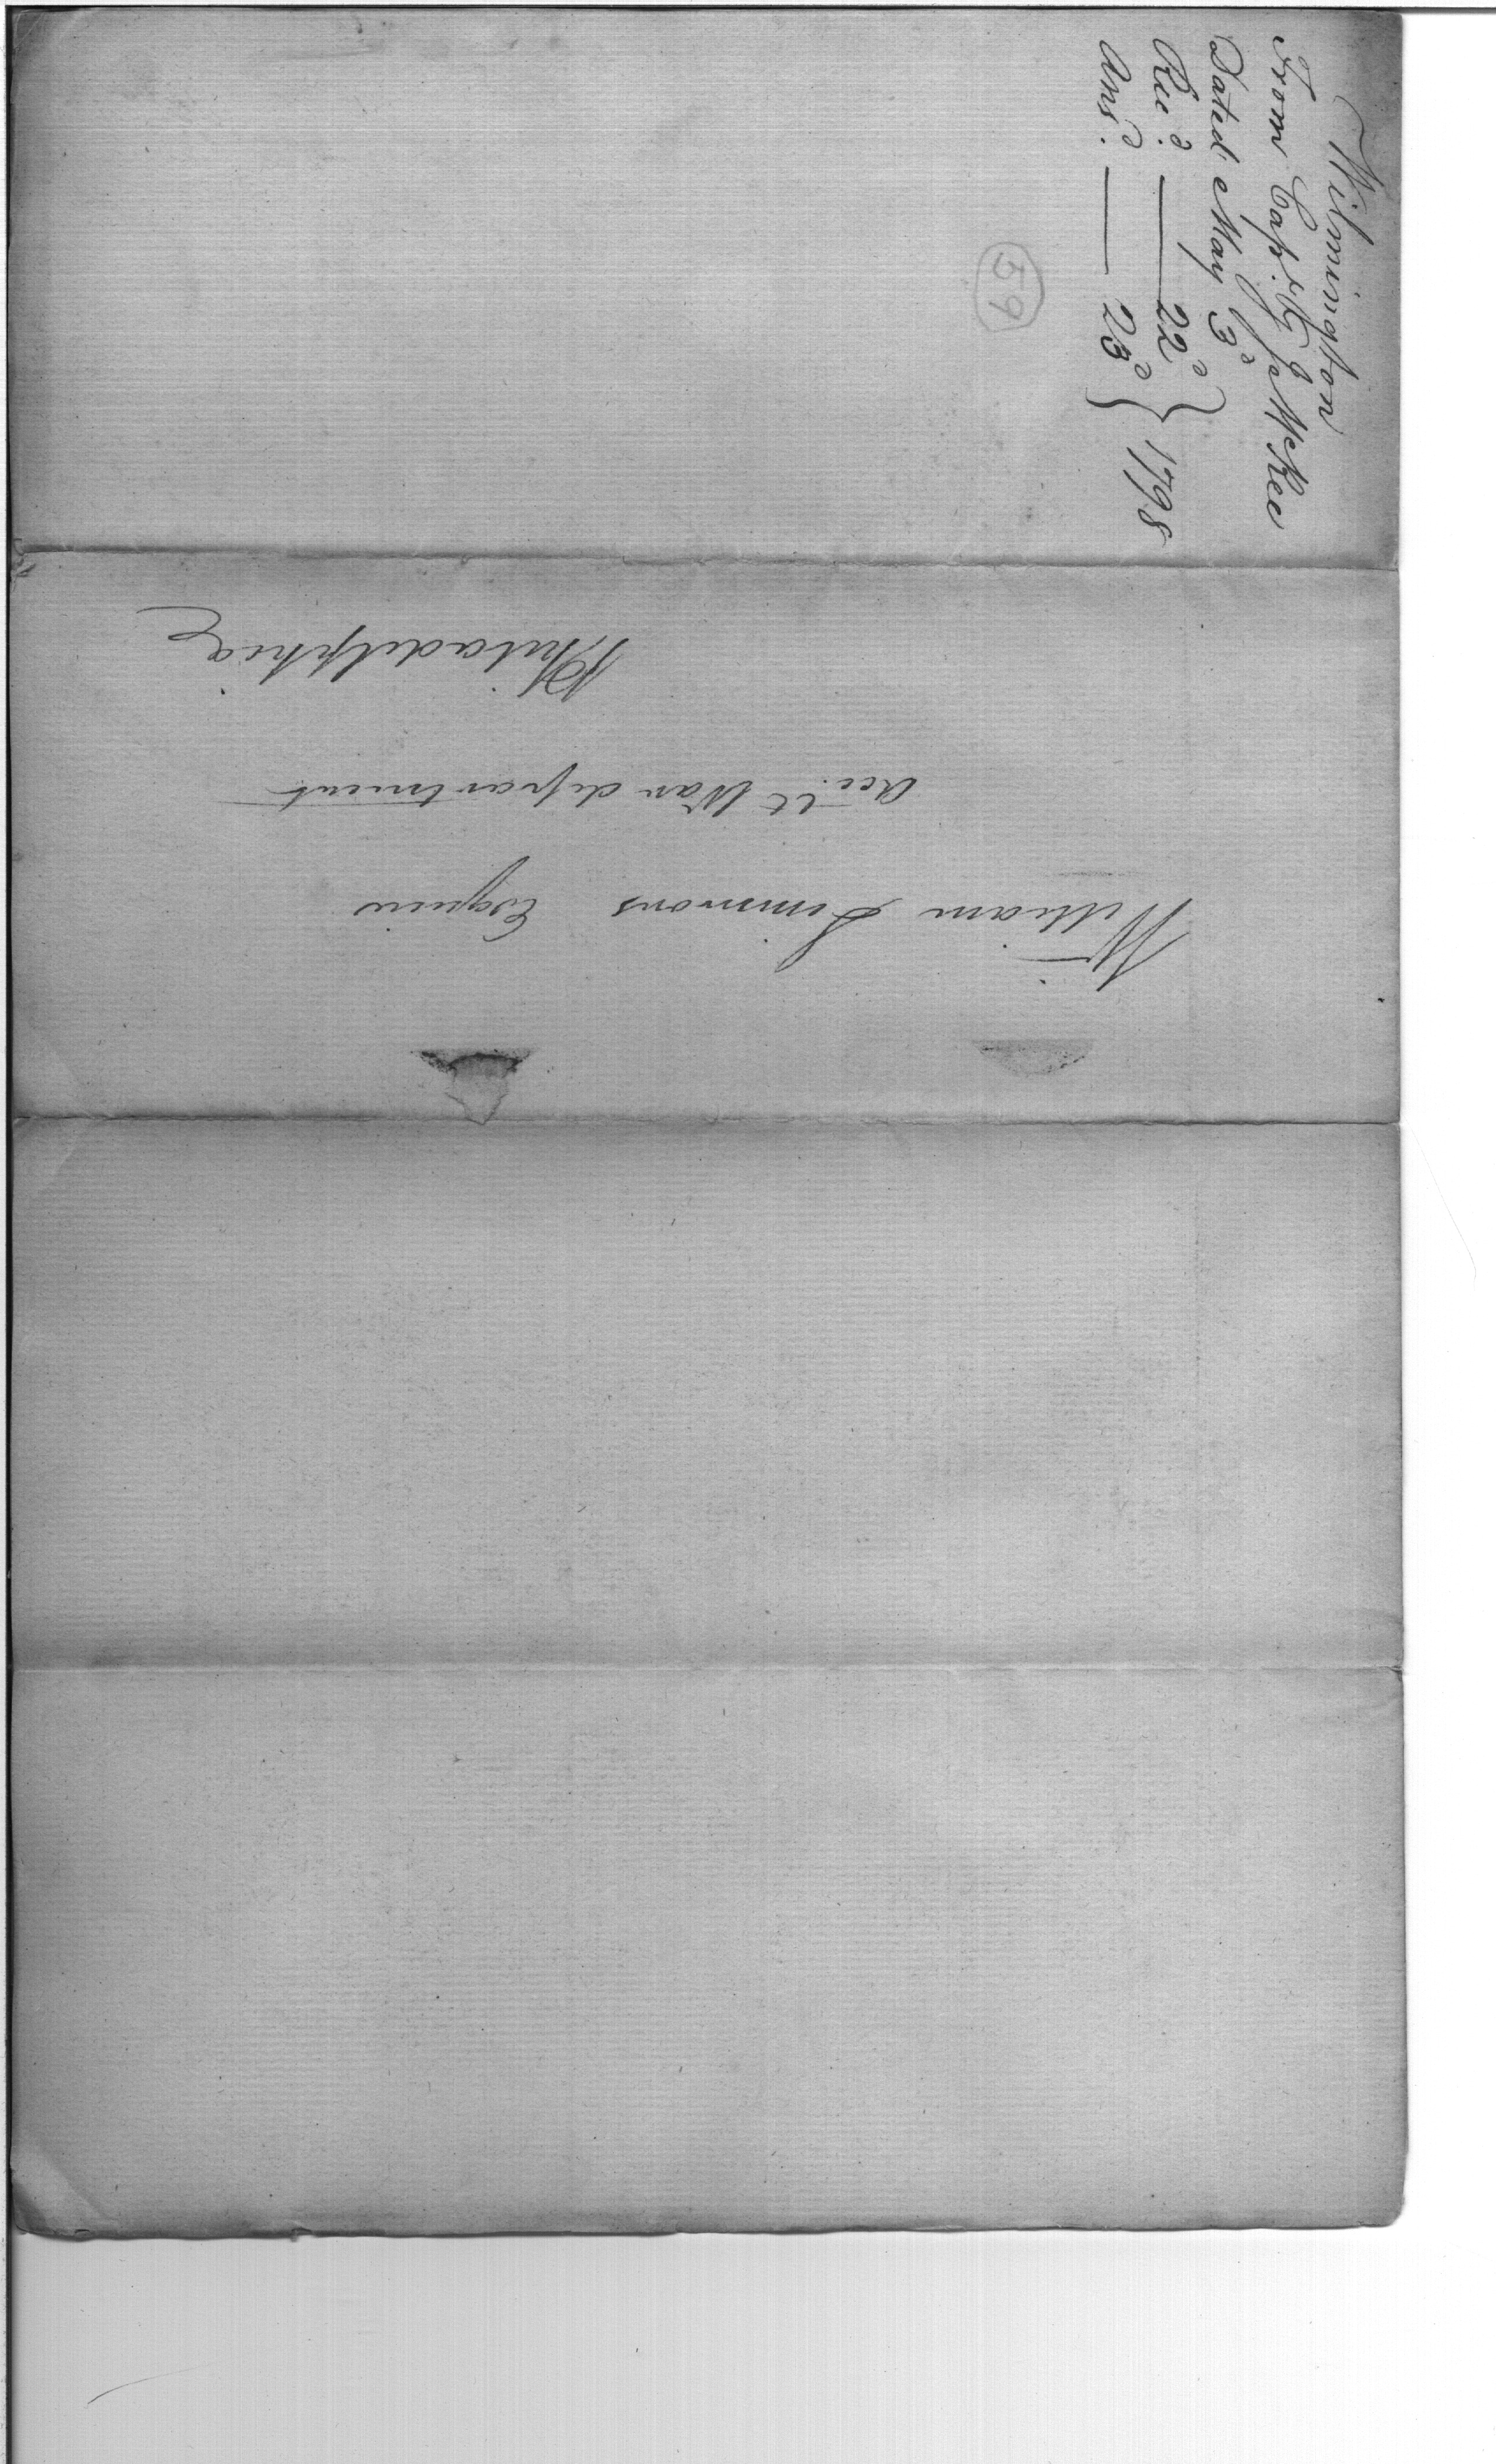 Wilmington
From Capt. G. J. McRee
Dated May 3d
Recd. — 22d } 1798
Ansd. — 23d
59
William Simmons Esquire
Acct. War department
Philadelphia